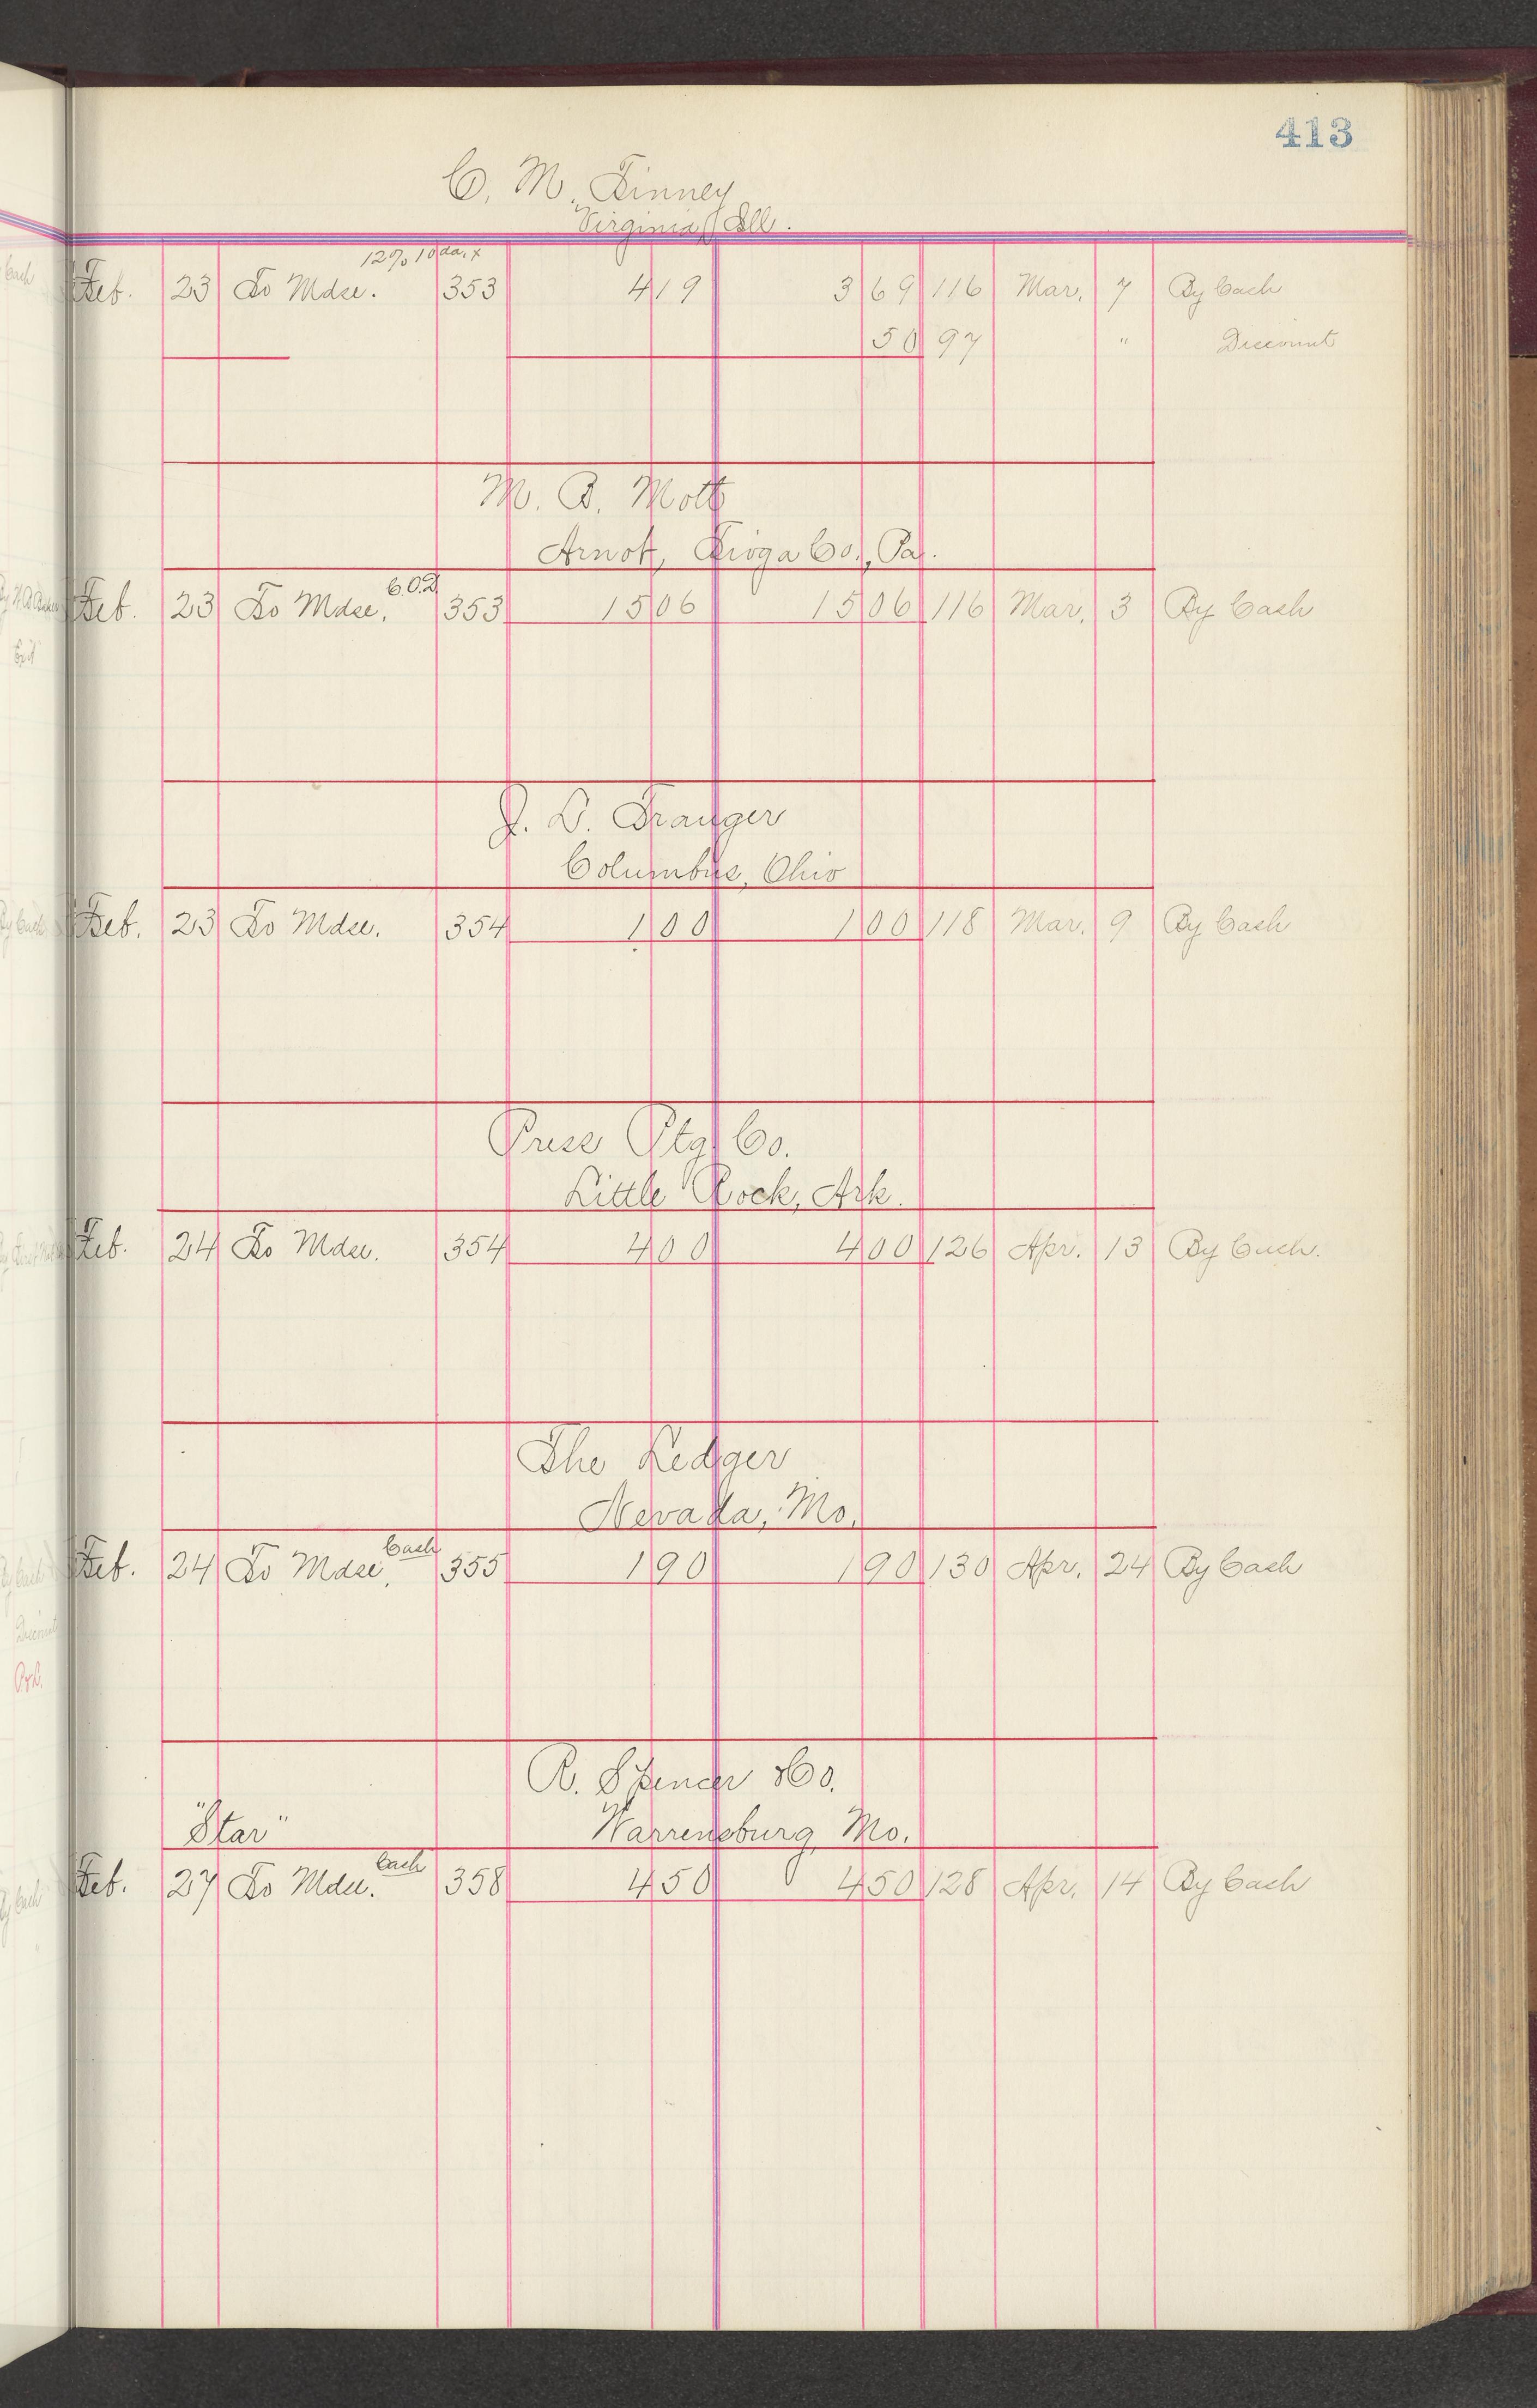 413
C. M. Tinney
Virginia, Ill.
12% 10 da. x
Feb. 23 To Mdse. 353 4 19 3 69 116 Mar. 7 By Cash
50 97 " Discount
M. B. Mott
Arnot, Tioga Co., Pa.
C.O.D
Feb. 23 To Mdse. 353 15 06 15 06 116 Mar. 3 By Cash
J. D. Trauger
Columbus, Ohio
Feb. 23 To Mdse. 354 1 00 1 00 118 Mar. 9 By Cash
Press Ptg Co.
Little Rock, Ark.
Feb. 24 To Mdse. 354 4 00 4 00 126 Apr. 13 By Cash.
The Ledger
Nevada, Mo.
Cash
Feb. 24 To Mdse. 355 1 90 1 90 130 Apr. 24 By Cash
R. Spencer & Co.
"Star" Warrensburg Mo.
Cash
Feb. 27 To Mdse. 358 4 50 4 50 128 Apr. 14 By Cash